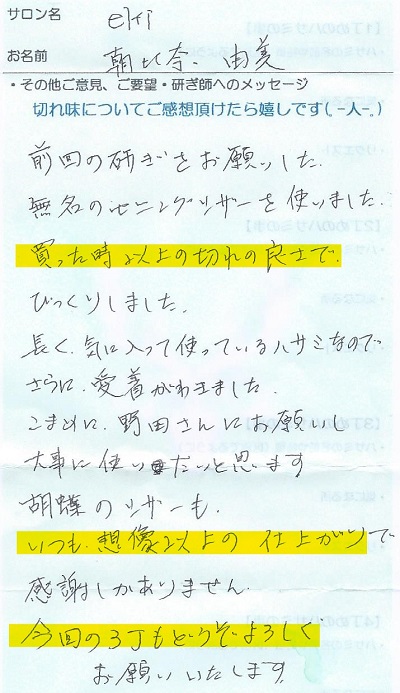 サロン名 elki
お名前 朝比奈 由美
・その他ご意見、ご要望・研ぎ師へのメッセージ
切れ味についてご感想頂けたら嬉しです(.-人-.)
前回の研ぎをお願いした.
無名のセニングシザーを使いました.
買った時以上の切れの良さで.
びっくりしました.
長く.気に入って使っているハサミなので
さらに.愛着がわきました.
こまめに.野田さんにお願いし
大事に使いたいと思います
胡蝶のシザーも.
いつも.想像以上の仕上がりで
感謝しかありません.
今回の3丁もどうぞよろしく
お願いいたします.